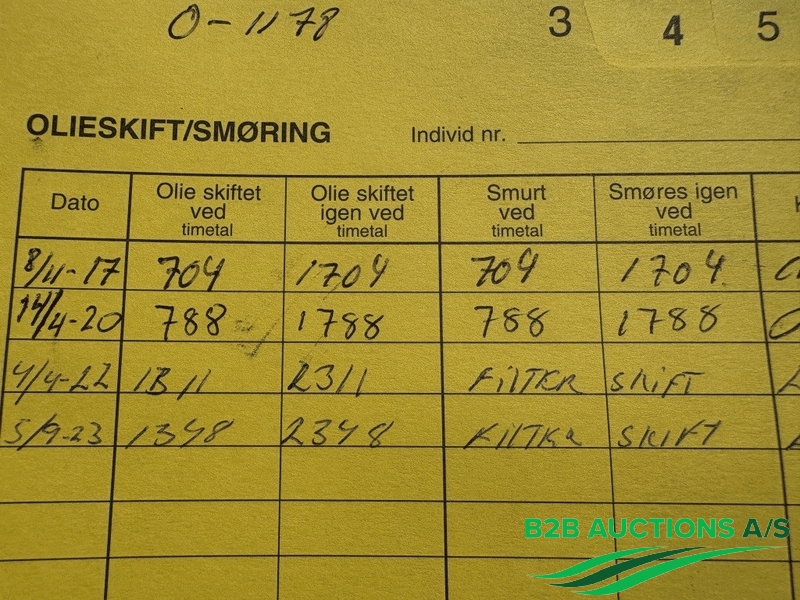 0-1178 3 4 5
OLIESKIFT/SMØRING Individ nr.
Dato Olie skiftet ved timetal Olie skiftet igen ved timetal Smurt ved timetal Smøres igen ved timetal
8/11-17 704 1704 704 1704
14/4-20 788 1788 788 1788
4/4-22 1311 2311 FILTER SKIFT
5/9-23 1348 2348 FILTER SKIFT
B2B AUCTIONS A/S